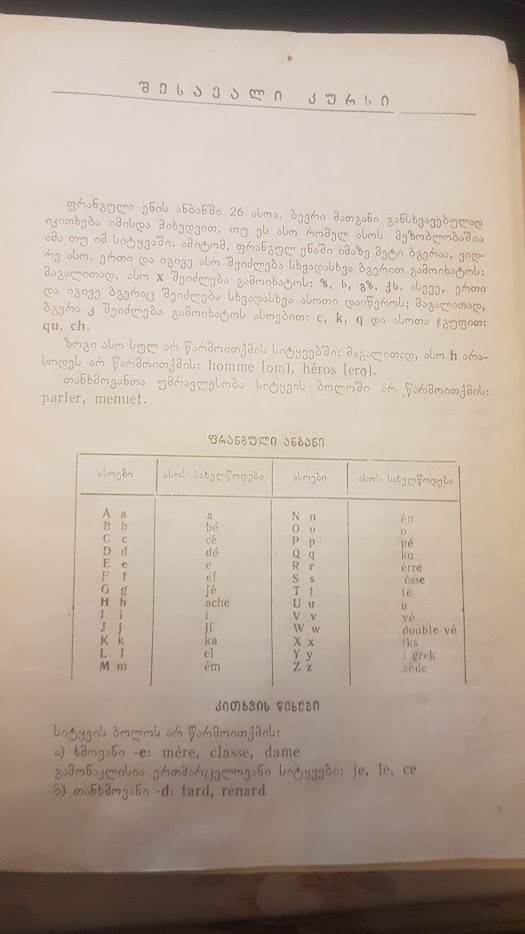 შესავალი კურსი
ფრანგული ენის ანბანში 26 ასოა. ბევრი მათგანი განსხვავებულად
იკითხება იმისდა მიხედვით, თუ ეს ასო რომელ ასოს მეზობლობაშია
ამა თუ იმ სიტყვაში. ამიტომ, ფრანგულ ენაში იმაზე მეტი ბგერაა, ვიდ-
რე ასო, ერთი და იგივე ასო შეიძლება სხვადასხვა ბგერით გამოიხატოს:
მაგალითად, ასო x შეიძლება გამოიხატოს: ზ, ს, გზ, ქს. ასევე, ერთი
და იგივე ბგერაც შეიძლება სხვადასხვა ასოთი დაიწეროს; მაგალითად,
ბგერა კ შეიძლება გამოიხატოს ასოებით: c, k, q და ასოთა ჯგუფით:
qu, ch.
ზოგი ასო სულ არ წარმოითქმის სიტყვებში: მაგალითად, ასო h არა-
სოდეს არ წარმოითქმის: homme [om], héros [ero].
თანხმოვანთა უმრავლესობა სიტყვის ბოლოში არ წარმოითქმის:
parler, menuet.
ფრანგული ანბანი
ასოები ასოს სახელწოდება ასოები ასოს სახელწოდება
A a a N n èn
B b bé O o o
C c cé P p pé
D d dé Q q ku
E e e R r erre
F f ef S s èsse
G g jé T t té
H h ache U u u
I i i V v vé
J j ji W w double vé
K k ka X x iks
L l el Y y i grek
M m èm Z z zède
კითხვის წესები
სიტყვის ბოლოს არ წარმოითქმის:
ა) ხმოვანი -e: mêre, classe, dame
გამონაკლისია ერთმარცვლოვანი სიტყვები: je, le, ce
ბ) თანხმოვანი -d: tard, renard